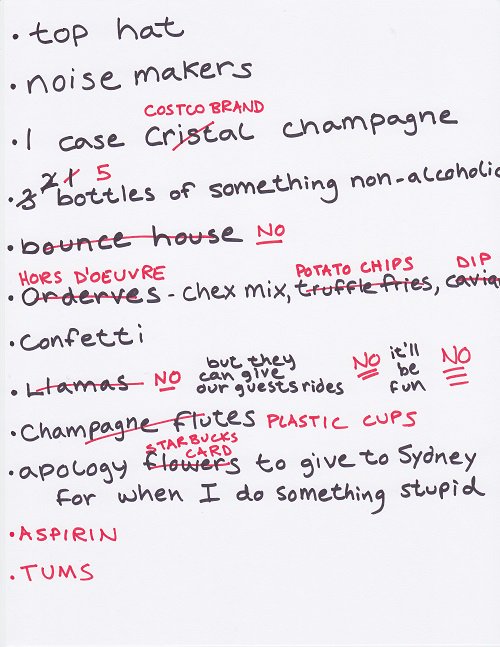 • top hat
• noise makers
COSTCO BRAND
• 1 case Cristal champagne
2 1 5
• 3 bottles of something non-alcoholic
• bounce house NO
HORS D'OEUVRE POTATO CHIPS DIP
• Orderves - chex mix, truffle fries, caviar
• Confetti
• Llamas NO but they can give our guests rides NO it'll be fun NO
• Champagne flutes PLASTIC CUPS
STARBUCKS CARD
• apology flowers to give to Sydney
for when I do something stupid
• ASPIRIN
• TUMS